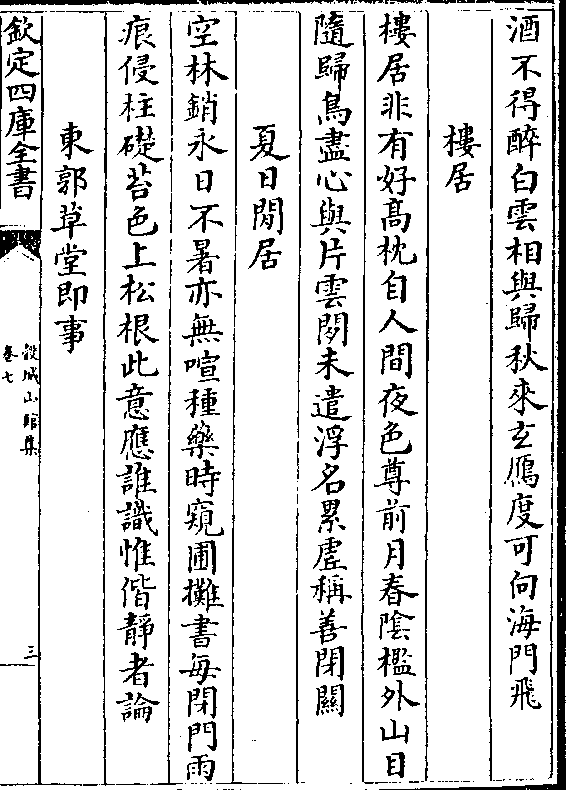 酒不得醉白雲相與歸秋來玄鴈度可向海門飛
樓居
樓居非有好髙枕自人間夜色尊前月春隂檻外山目
隨歸鳥盡心與片雲閒未遣浮名累虛稱善閉關
夏日閒居
空林銷永日不暑亦無喧種藥時窺圃攤書每閉門雨
痕侵柱礎苔色上松根此意應誰識惟偕靜者論
東郭草堂即事
欽定四庫全書
糓城山館集
卷七
三